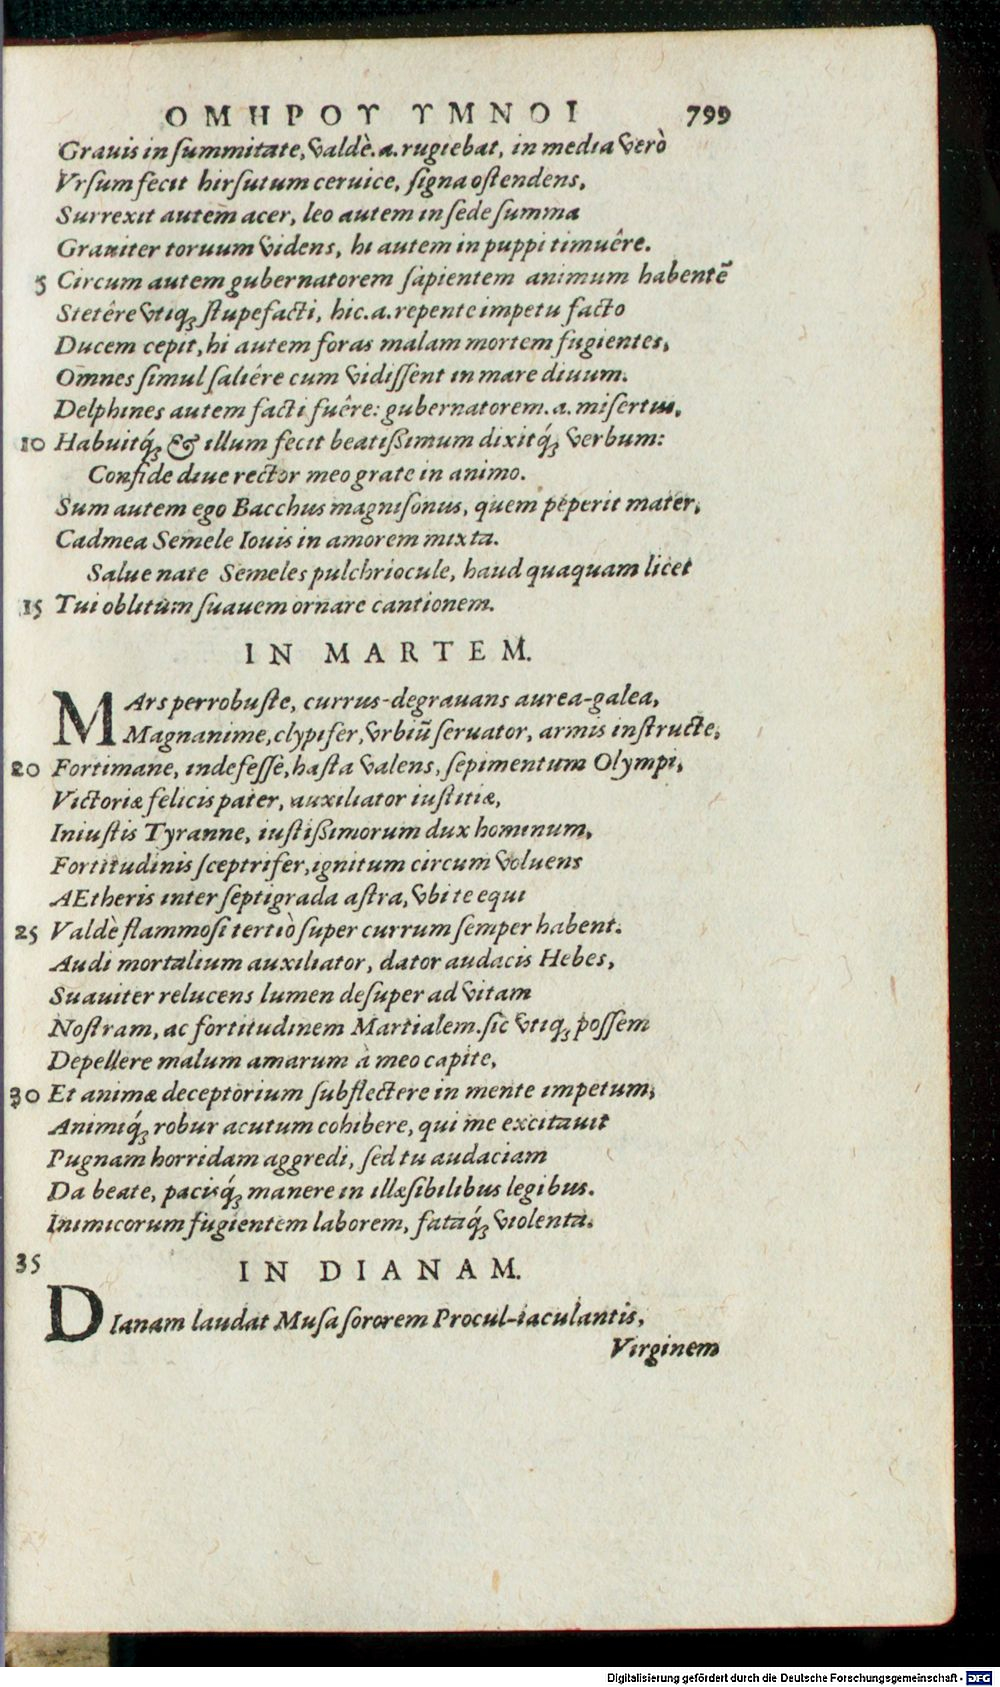 ΟΜΗΡΟΥ ΥΜΝΟΙ 799
Grauis in ſummitate, valdè.a.rugiebat, in media verò
Vrſum fecit hirſutum ceruice, ſigna oſtendens,
Surrexit autem acer, leo autem in ſede ſumma
Grauiter toruum videns, hi autem in puppi timuêre.
5 Circum autem gubernatorem ſapientem animum habentē
Stetêre vtiq; ſtupefacti, hic.a.repente impetu facto
Ducem cepit, hi autem foras malam mortem fugientes,
Omnes ſimul ſaliêre cum vidiſſent in mare diuum.
Delphines autem facti fuêre: gubernatorem.a. miſertus,
10 Habuitq́; & illum fecit beatiſſimum dixitq́; verbum:
Confide diue rector meo grate in animo.
Sum autem ego Bacchus magniſonus, quem peperit mater,
Cadmea Semele Iouis in amorem mixta.
Salue nate Semeles pulchriocule, haud quaquam licet
15 Tui oblitum ſuauem ornare cantionem.
IN MARTEM.
MArs perrobuſte, currus-degrauans aurea-galea,
Magnanime, clypifer, vrbiū ſeruator, armis inſtructe,
20 Fortimane, indefeſſe, haſta valens, ſepimentum Olympi,
Victoriæ felicis pater, auxiliator iuſtitiæ,
Iniuſtis Tyranne, iuſtiſſimorum dux hominum,
Fortitudinis ſceptrifer, ignitum circum voluens
AEtheris inter ſeptigrada aſtra, vbi te equi
25 Valdè flammoſi tertiò ſuper currum ſemper habent.
Audi mortalium auxiliator, dator audacis Hebes,
Suauiter relucens lumen deſuper ad vitam
Noſtram, ac fortitudinem Martialem. ſic vtiq; poſſem
Depellere malum amarum à meo capite,
30 Et animæ deceptorium ſubflectere in mente impetum,
Animiq́; robur acutum cohibere, qui me excitauit
Pugnam horridam aggredi, ſed tu audaciam
Da beate, pacisq́; manere in illæſibilibus legibus.
Inimicorum fugientem laborem, fataq́; violenta.
35 IN DIANAM.
DIanam laudat Muſa ſororem Procul-iaculantis,
Virginem
Digitalisierung gefördert durch die Deutsche Forschungsgemeinschaft - DFG